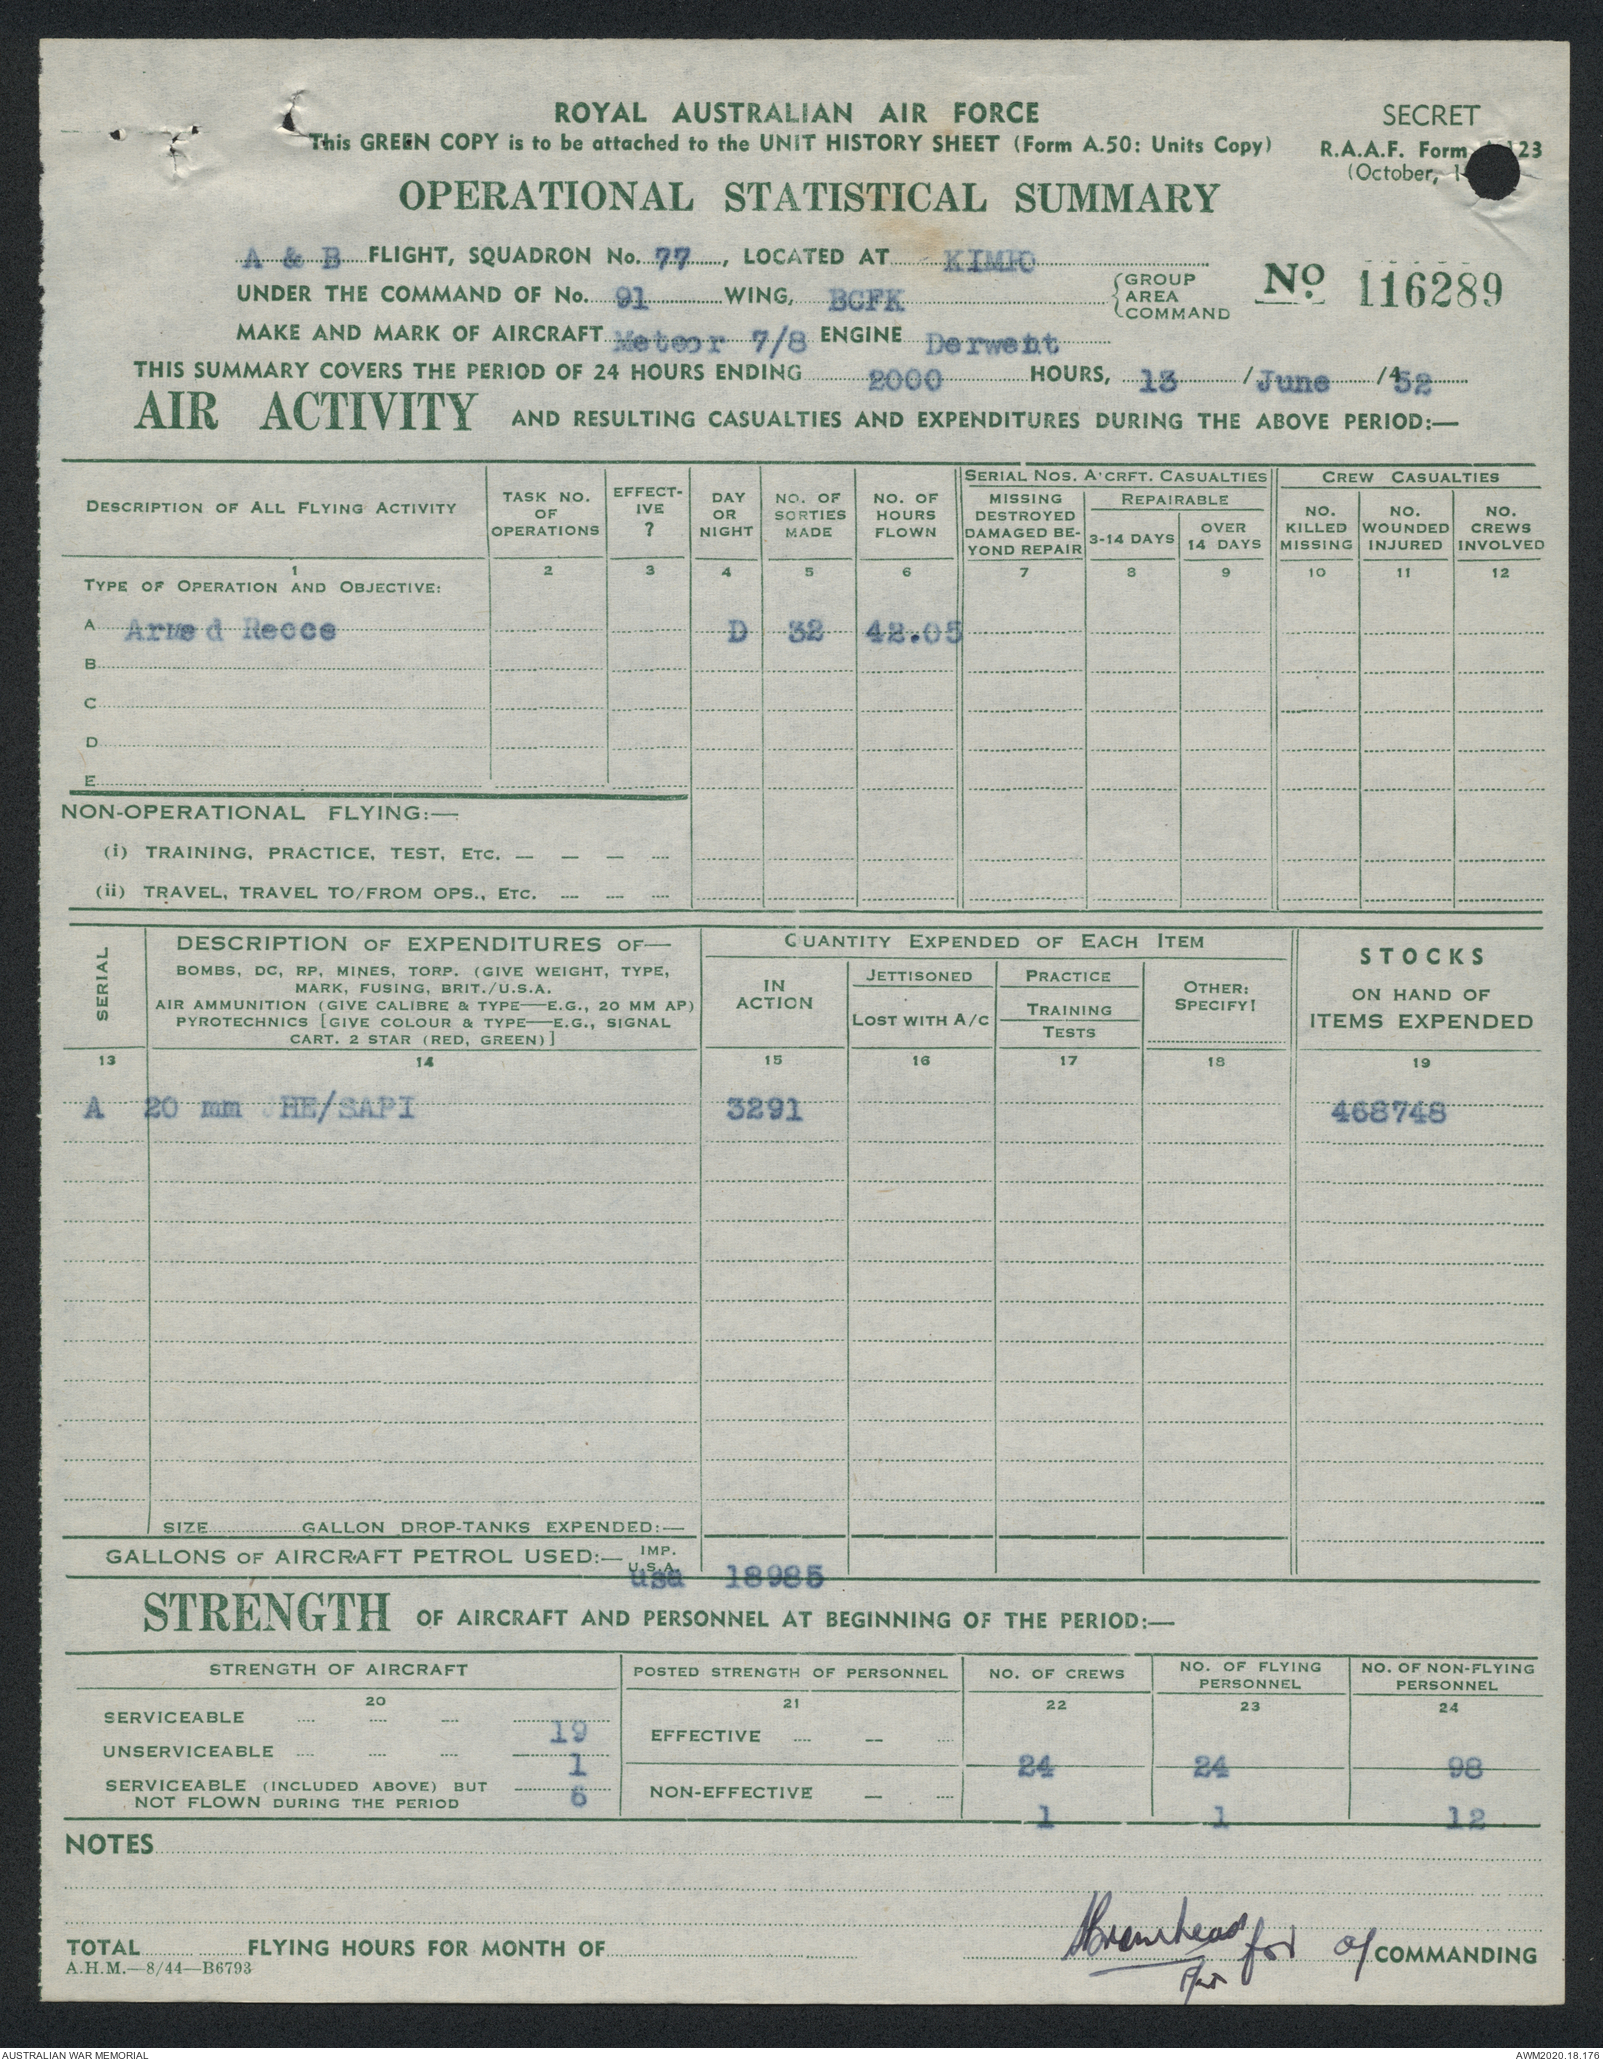 ROYAL AUSTRALIAN AIR FORCE
SECRET
This GREEN COPY is to be attached to the UNIT HISTORY SHEET (Form A.50: Units Copy)
R.A.A.F. Form 123
(October, 1
OPERATIONAL STATISTICAL SUMMARY
A & B FLIGHT, SQUADRON No. 77, LOCATED AT KIMPO
UNDER THE COMMAND OF No. 91 WING, BCFK {GROUP AREA COMMAND
No 116289
MAKE AND MARK OF AIRCRAFT Meteor 7/8 ENGINE Derwent
THIS SUMMARY COVERS THE PERIOD OF 24 HOURS ENDING 2000 HOURS, 13 / June / 52
AIR ACTIVITY AND RESULTING CASUALTIES AND EXPENDITURES DURING THE ABOVE PERIOD:—
DESCRIPTION OF ALL FLYING ACTIVITY
TASK NO. OF OPERATIONS
EFFECTIVE ?
DAY OR NIGHT
NO. OF SORTIES MADE
NO. OF HOURS FLOWN
SERIAL NOS. A'CRFT. CASUALTIES
MISSING DESTROYED DAMAGED BEYOND REPAIR
REPAIRABLE
3-14 DAYS
OVER 14 DAYS
CREW CASUALTIES
NO. KILLED MISSING
NO. WOUNDED INJURED
NO. CREWS INVOLVED
1 2 3 4 5 6 7 8 9 10 11 12
TYPE OF OPERATION AND OBJECTIVE:
A Armed Recce D 32 42.05
B
C
D
E
NON-OPERATIONAL FLYING:—
(i) TRAINING, PRACTICE, TEST, ETC. — — — —
(ii) TRAVEL, TRAVEL TO/FROM OPS., ETC. — — —
SERIAL
DESCRIPTION OF EXPENDITURES OF—
BOMBS, DC, RP, MINES, TORP. (GIVE WEIGHT, TYPE,
MARK, FUSING, BRIT./U.S.A.
AIR AMMUNITION (GIVE CALIBRE & TYPE—E.G., 20 MM AP)
PYROTECHNICS [GIVE COLOUR & TYPE—E.G., SIGNAL
CART. 2 STAR (RED, GREEN)]
QUANTITY EXPENDED OF EACH ITEM
IN ACTION
JETTISONED
LOST WITH A/C
PRACTICE
TRAINING
TESTS
OTHER: SPECIFY!
STOCKS
ON HAND OF
ITEMS EXPENDED
13 14 15 16 17 18 19
A 20 mm HE/SAPI 3291 468748
SIZE GALLON DROP-TANKS EXPENDED:—
GALLONS OF AIRCRAFT PETROL USED:— IMP. U.S.A. usa 18985
STRENGTH OF AIRCRAFT AND PERSONNEL AT BEGINNING OF THE PERIOD:—
STRENGTH OF AIRCRAFT
POSTED STRENGTH OF PERSONNEL
NO. OF CREWS
NO. OF FLYING PERSONNEL
NO. OF NON-FLYING PERSONNEL
20 21 22 23 24
SERVICEABLE 19
UNSERVICEABLE 1
SERVICEABLE (INCLUDED ABOVE) BUT
NOT FLOWN DURING THE PERIOD 6
EFFECTIVE 24 24 98
NON-EFFECTIVE 1 1 12
NOTES
TOTAL FLYING HOURS FOR MONTH OF
for
COMMANDING
A.H.M.—8/44—B6793
AUSTRALIAN WAR MEMORIAL
AWM2020.18.176